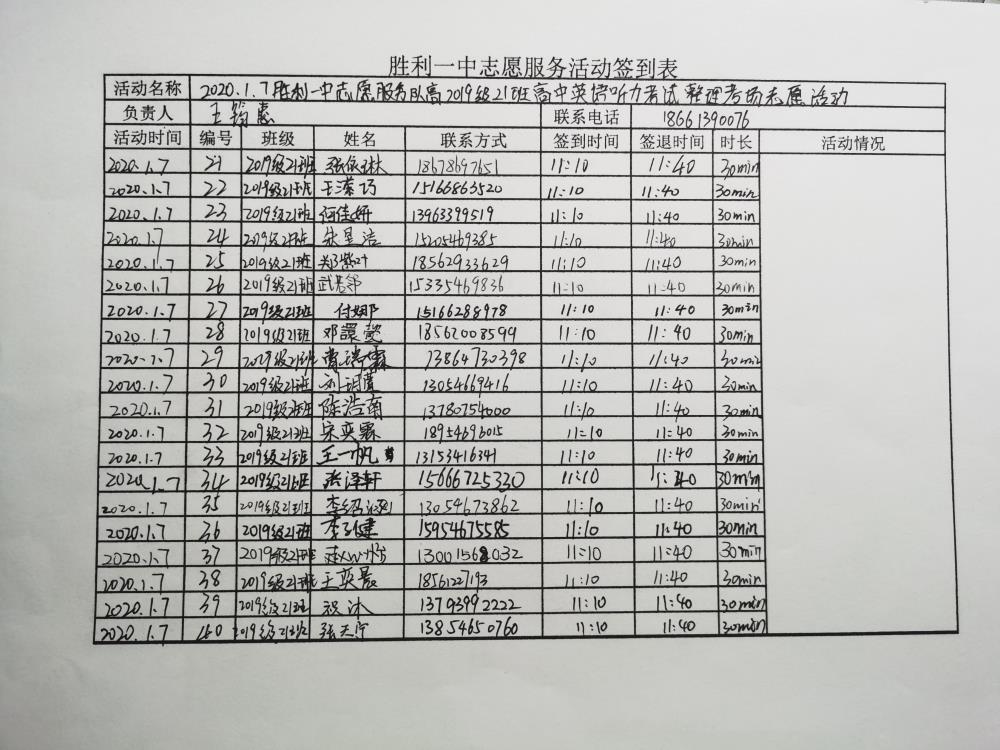 胜利一中志愿服务活动签到表
活动名称 2020.1.7胜利一中志愿服务队高2019级21班高中英语听力考试整理考场志愿活动
负责人 王 联系电话 18661390076
活动时间 编号 班级 姓名 联系方式 签到时间 签退时间 时长 活动情况
2020.1.7 21 2019级21班 张依琳 18678697651 11:10 11:40 30min
2020.1.7 22 2019级21班 王潆巧 15166863520 11:10 11:40 30min
2020.1.7 23 2019级21班 何佳妍 13963399519 11:10 11:40 30min
2020.1.7 24 2019级21班 朱昱洁 15205469385 11:10 11:40 30min
2020.1.7 25 2019级21班 郑紫叶 18562933629 11:10 11:40 30min
2020.1.7 26 2019级21班 武 15335469836 11:10 11:40 30min
2020.1.7 27 2019级21班 付娜 15166288978 11:10 11:40 30min
2020.1.7 28 2019级21班 邓 18562008599 11:10 11:40 30min
2020.1.7 29 2019级21班 13864730398 11:10 11:40 30min
2020.1.7 30 2019级21班 刘 13054669416 11:10 11:40 30min
2020.1.7 31 2019级21班 陈浩南 13780754000 11:10 11:40 30min
2020.1.7 32 2019级21班 宋奕霖 18954696015 11:10 11:40 30min
2020.1.7 33 2019级21班 王一帆 13153416341 11:10 11:40 30min
2020.1.7 34 2019级21班 张泽轩 15666725320 11:10 11:40 30min
2020.1.7 35 2019级21班 李绍 13054673862 11:10 11:40 30min
2020.1.7 36 2019级21班 李 15954675585 11:10 11:40 30min
2020.1.7 37 2019级21班 13001568032 11:10 11:40 30min
2020.1.7 38 2019级21班 王奕晨 18561227193 11:10 11:40 30min
2020.1.7 39 2019级21班 程沐 13793992222 11:10 11:40 30min
2020.1.7 40 2019级21班 张天宁 13854650760 11:10 11:40 30min